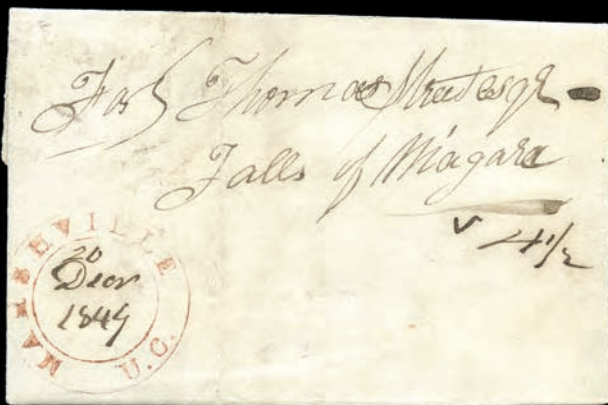 For Thomas Street esqr
Falls of Niagara
4½
MARSHVILLE
20
Decr
1849
U.C.